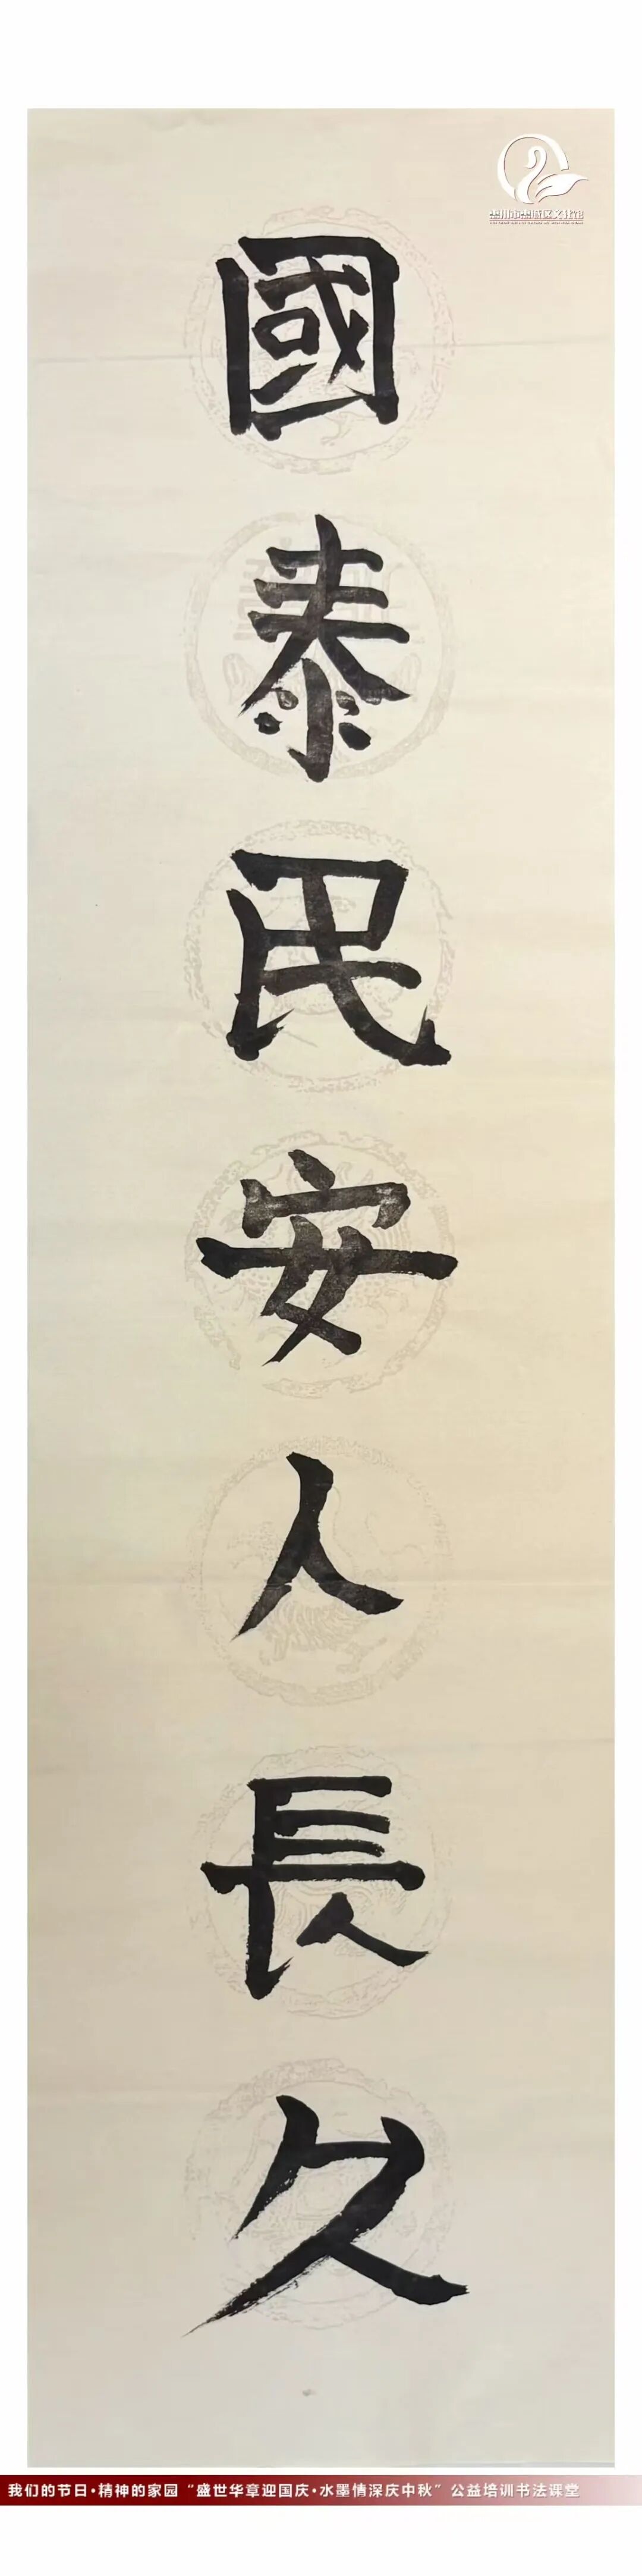 國泰民安人長久
我们的节日·精神的家园“盛世华章迎国庆·水墨情深庆中秋”公益培训书法课堂